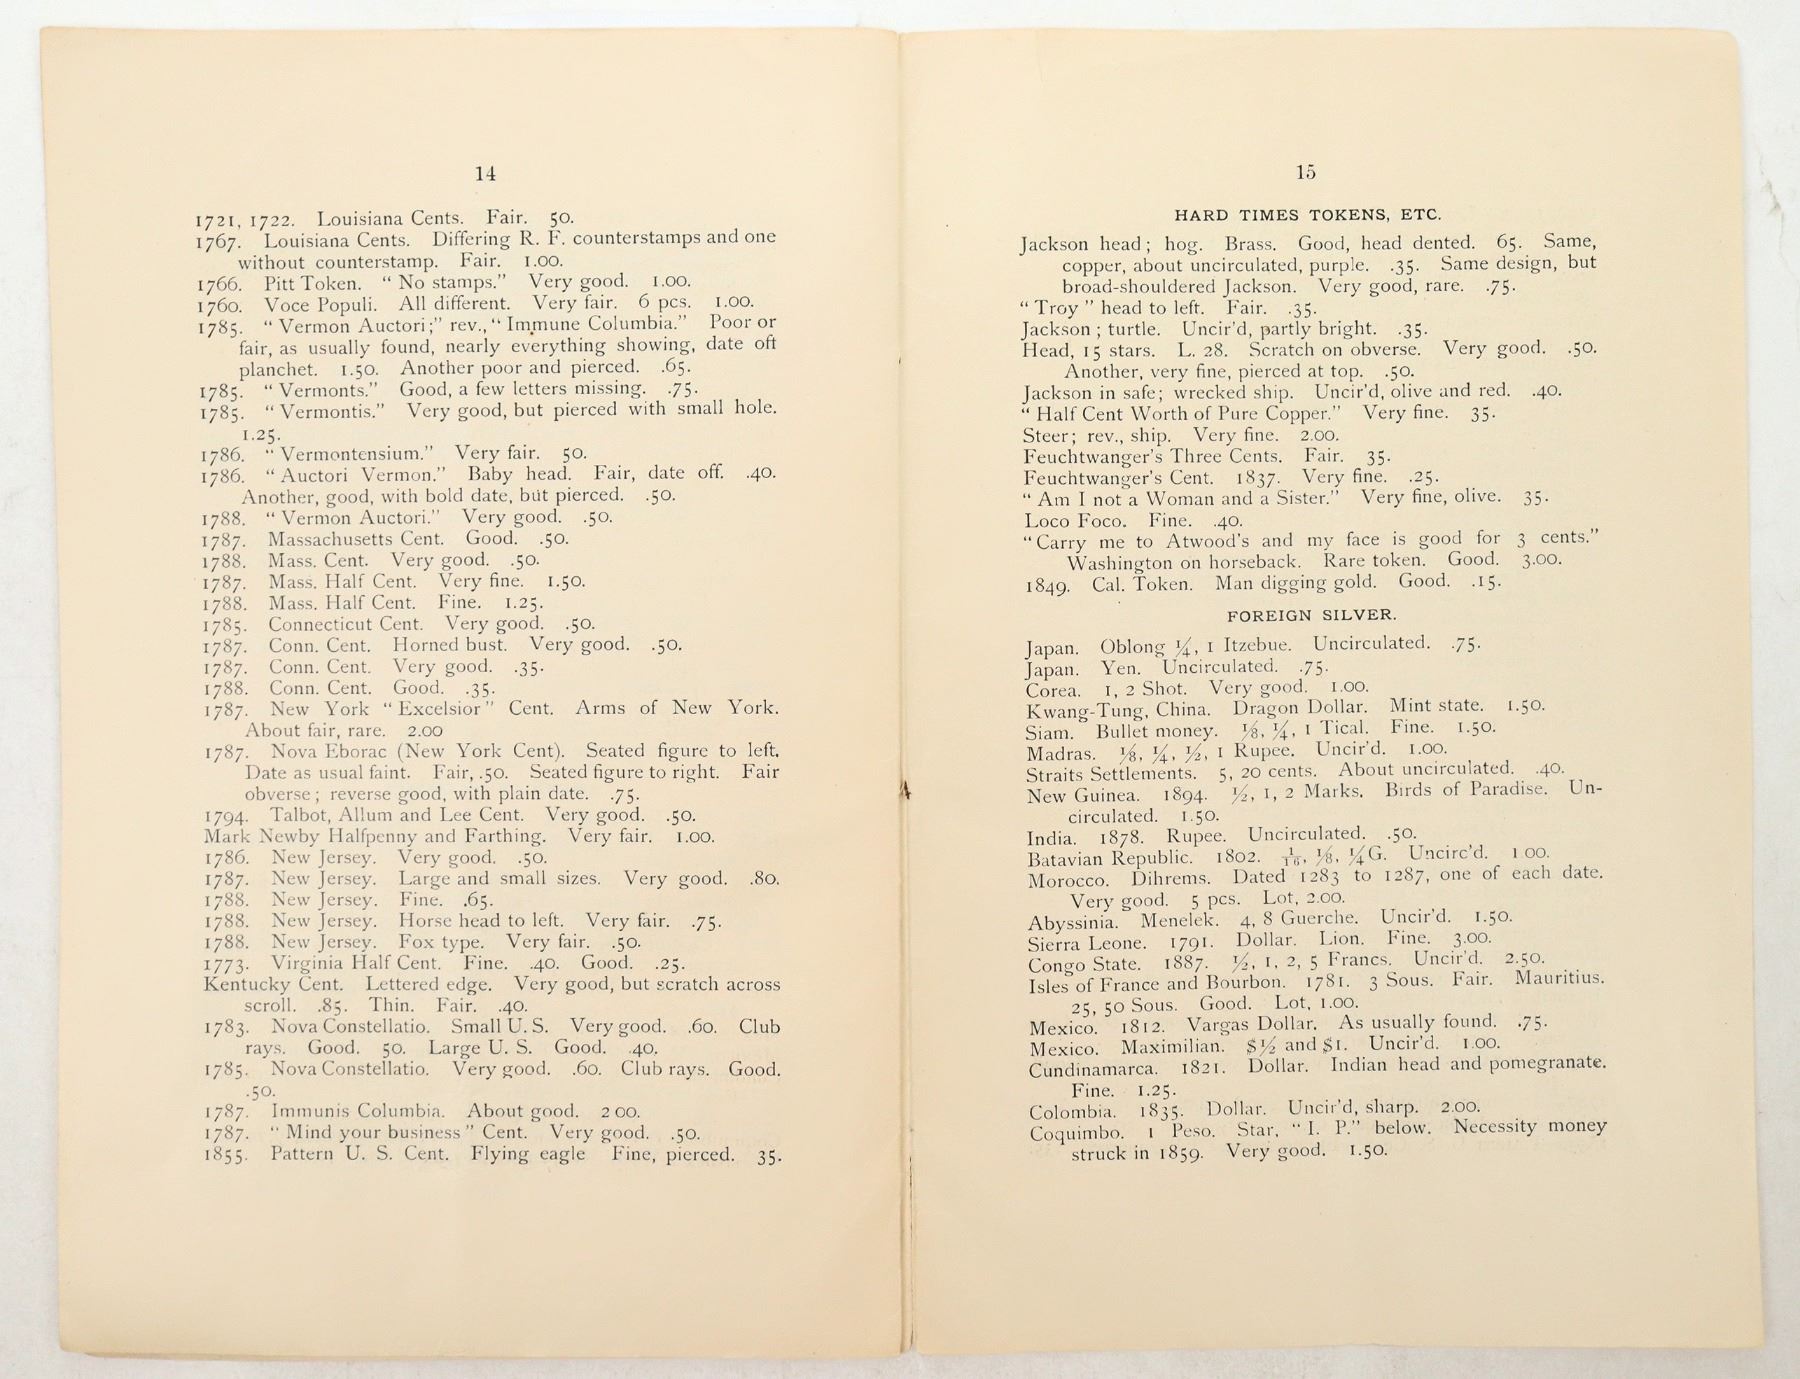 14
1721, 1722. Louisiana Cents. Fair. 50.
1767. Louisiana Cents. Differing R. F. counterstamps and one
without counterstamp. Fair. 1.00.
1766. Pitt Token. "No stamps." Very good. 1.00.
1760. Voce Populi. All different. Very fair. 6 pcs. 1.00.
1785. "Vermon Auctori;" rev., "Immune Columbia." Poor or
fair, as usually found, nearly everything showing, date oft
planchet. 1.50. Another poor and pierced. .65.
1785. "Vermonts." Good, a few letters missing. .75.
1785. "Vermontis." Very good, but pierced with small hole.
1.25.
1786. "Vermontensium." Very fair. 50.
1786. "Auctori Vermon." Baby head. Fair, date off. .40.
Another, good, with bold date, but pierced. .50.
1788. "Vermon Auctori." Very good. .50.
1787. Massachusetts Cent. Good. .50.
1788. Mass. Cent. Very good. .50.
1787. Mass. Half Cent. Very fine. 1.50.
1788. Mass. Half Cent. Fine. 1.25.
1785. Connecticut Cent. Very good. .50.
1787. Conn. Cent. Horned bust. Very good. .50.
1787. Conn. Cent. Very good. .35.
1788. Conn. Cent. Good. .35.
1787. New York "Excelsior" Cent. Arms of New York.
About fair, rare. 2.00
1787. Nova Eborac (New York Cent). Seated figure to left.
Date as usual faint. Fair, .50. Seated figure to right. Fair
obverse; reverse good, with plain date. .75.
1794. Talbot, Allum and Lee Cent. Very good. .50.
Mark Newby Halfpenny and Farthing. Very fair. 1.00.
1786. New Jersey. Very good. .50.
1787. New Jersey. Large and small sizes. Very good. .80.
1788. New Jersey. Fine. .65.
1788. New Jersey. Horse head to left. Very fair. .75.
1788. New Jersey. Fox type. Very fair. .50.
1773. Virginia Half Cent. Fine. .40. Good. .25.
Kentucky Cent. Lettered edge. Very good, but scratch across
scroll. .85. Thin. Fair. .40.
1783. Nova Constellatio. Small U. S. Very good. .60. Club
rays. Good. 50. Large U. S. Good. .40.
1785. Nova Constellatio. Very good. .60. Club rays. Good.
.50.
1787. Immunis Columbia. About good. 2 00.
1787. "Mind your business" Cent. Very good. .50.
1855. Pattern U. S. Cent. Flying eagle Fine, pierced. 35.
15
HARD TIMES TOKENS, ETC.
Jackson head; hog. Brass. Good, head dented. 65. Same,
copper, about uncirculated, purple. .35. Same design, but
broad-shouldered Jackson. Very good, rare. .75.
"Troy" head to left. Fair. .35.
Jackson; turtle. Uncir'd, partly bright. .35.
Head, 15 stars. L. 28. Scratch on obverse. Very good. .50.
Another, very fine, pierced at top. .50.
Jackson in safe; wrecked ship. Uncir'd, olive and red. .40.
"Half Cent Worth of Pure Copper." Very fine. 35.
Steer; rev., ship. Very fine. 2.00.
Feuchtwanger's Three Cents. Fair. 35.
Feuchtwanger's Cent. 1837. Very fine. .25.
"Am I not a Woman and a Sister." Very fine, olive. 35.
Loco Foco. Fine. .40.
"Carry me to Atwood's and my face is good for 3 cents."
Washington on horseback. Rare token. Good. 3.00.
1849. Cal. Token. Man digging gold. Good. .15.
FOREIGN SILVER.
Japan. Oblong ¼, 1 Itzebue. Uncirculated. .75.
Japan. Yen. Uncirculated. .75.
Corea. 1, 2 Shot. Very good. 1.00.
Kwang-Tung, China. Dragon Dollar. Mint state. 1.50.
Siam. Bullet money. ⅛, ¼, 1 Tical. Fine. 1.50.
Madras. ⅛, ¼, ½, 1 Rupee. Uncir'd. 1.00.
Straits Settlements. 5, 20 cents. About uncirculated. .40.
New Guinea. 1894. ½, 1, 2 Marks. Birds of Paradise. Un-
circulated. 1.50.
India. 1878. Rupee. Uncirculated. .50.
Batavian Republic. 1802. 1/16, ⅛, ¼ G. Uncirc'd. 1 00.
Morocco. Dihrems. Dated 1283 to 1287, one of each date.
Very good. 5 pcs. Lot, 2.00.
Abyssinia. Menelek. 4, 8 Guerche. Uncir'd. 1.50.
Sierra Leone. 1791. Dollar. Lion. Fine. 3.00.
Congo State. 1887. ½, 1, 2, 5 Francs. Uncir'd. 2.50.
Isles of France and Bourbon. 1781. 3 Sous. Fair. Mauritius.
25, 50 Sous. Good. Lot, 1.00.
Mexico. 1812. Vargas Dollar. As usually found. .75.
Mexico. Maximilian. $½ and $1. Uncir'd. 1.00.
Cundinamarca. 1821. Dollar. Indian head and pomegranate.
Fine. 1.25.
Colombia. 1835. Dollar. Uncir'd, sharp. 2.00.
Coquimbo. 1 Peso. Star, "I. P." below. Necessity money
struck in 1859. Very good. 1.50.